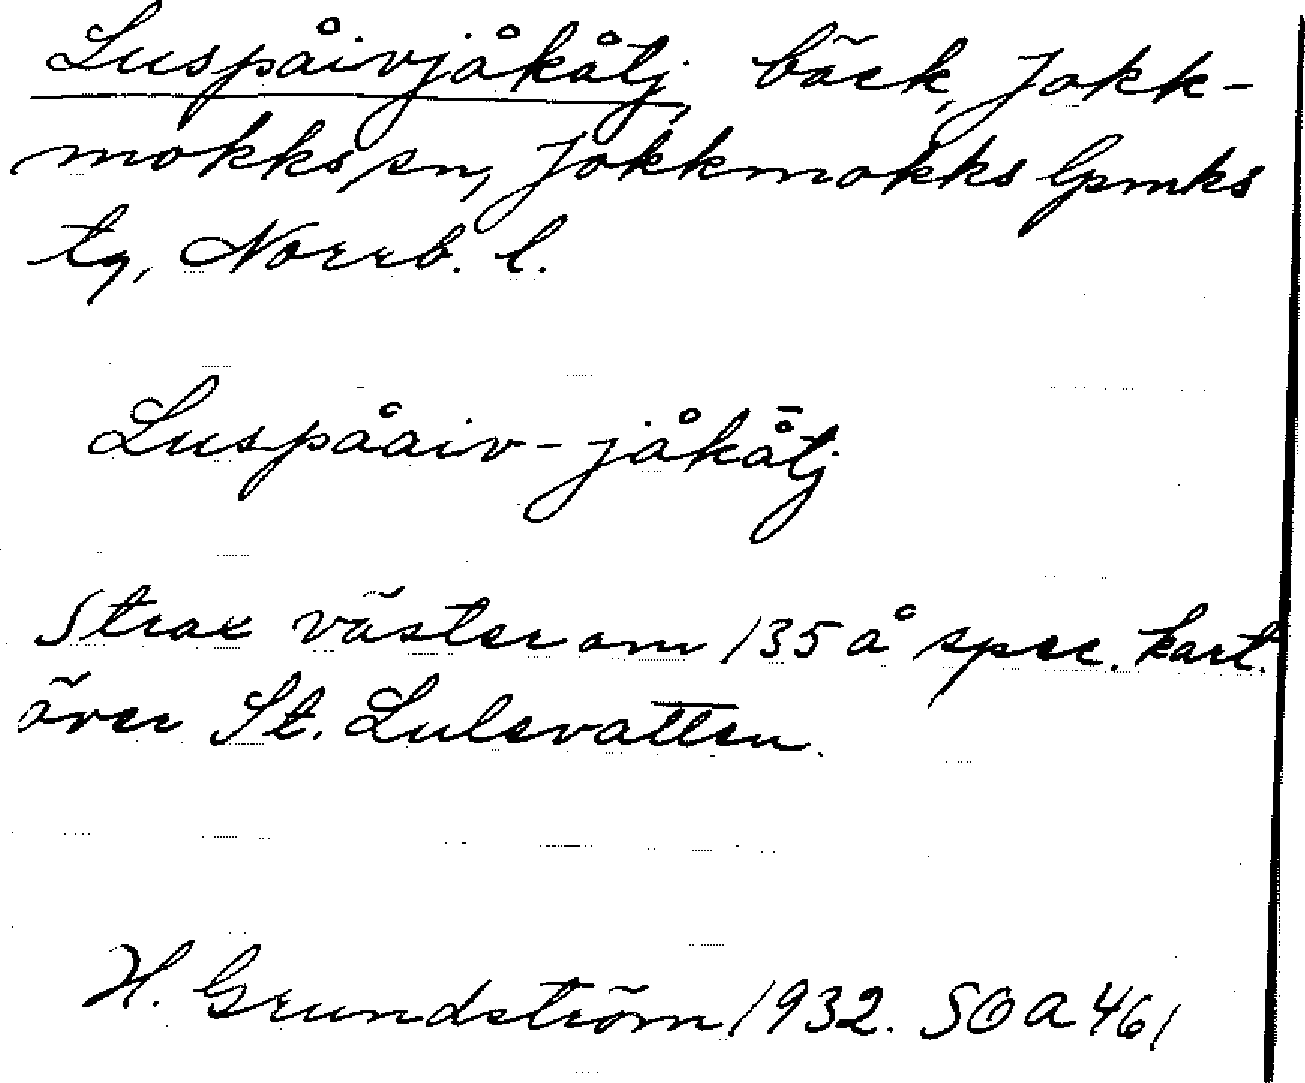 Luspåivjåkåtj, bäck, Jokk-
mokks sn, Jokkmokks lpmks
tg, Norrb. l.
Luspåaiv-jåkå̄tj
Strax väster om 135 å spec. kart.
över St. Lulevatten.
H. Grundström 1932. SOA 461